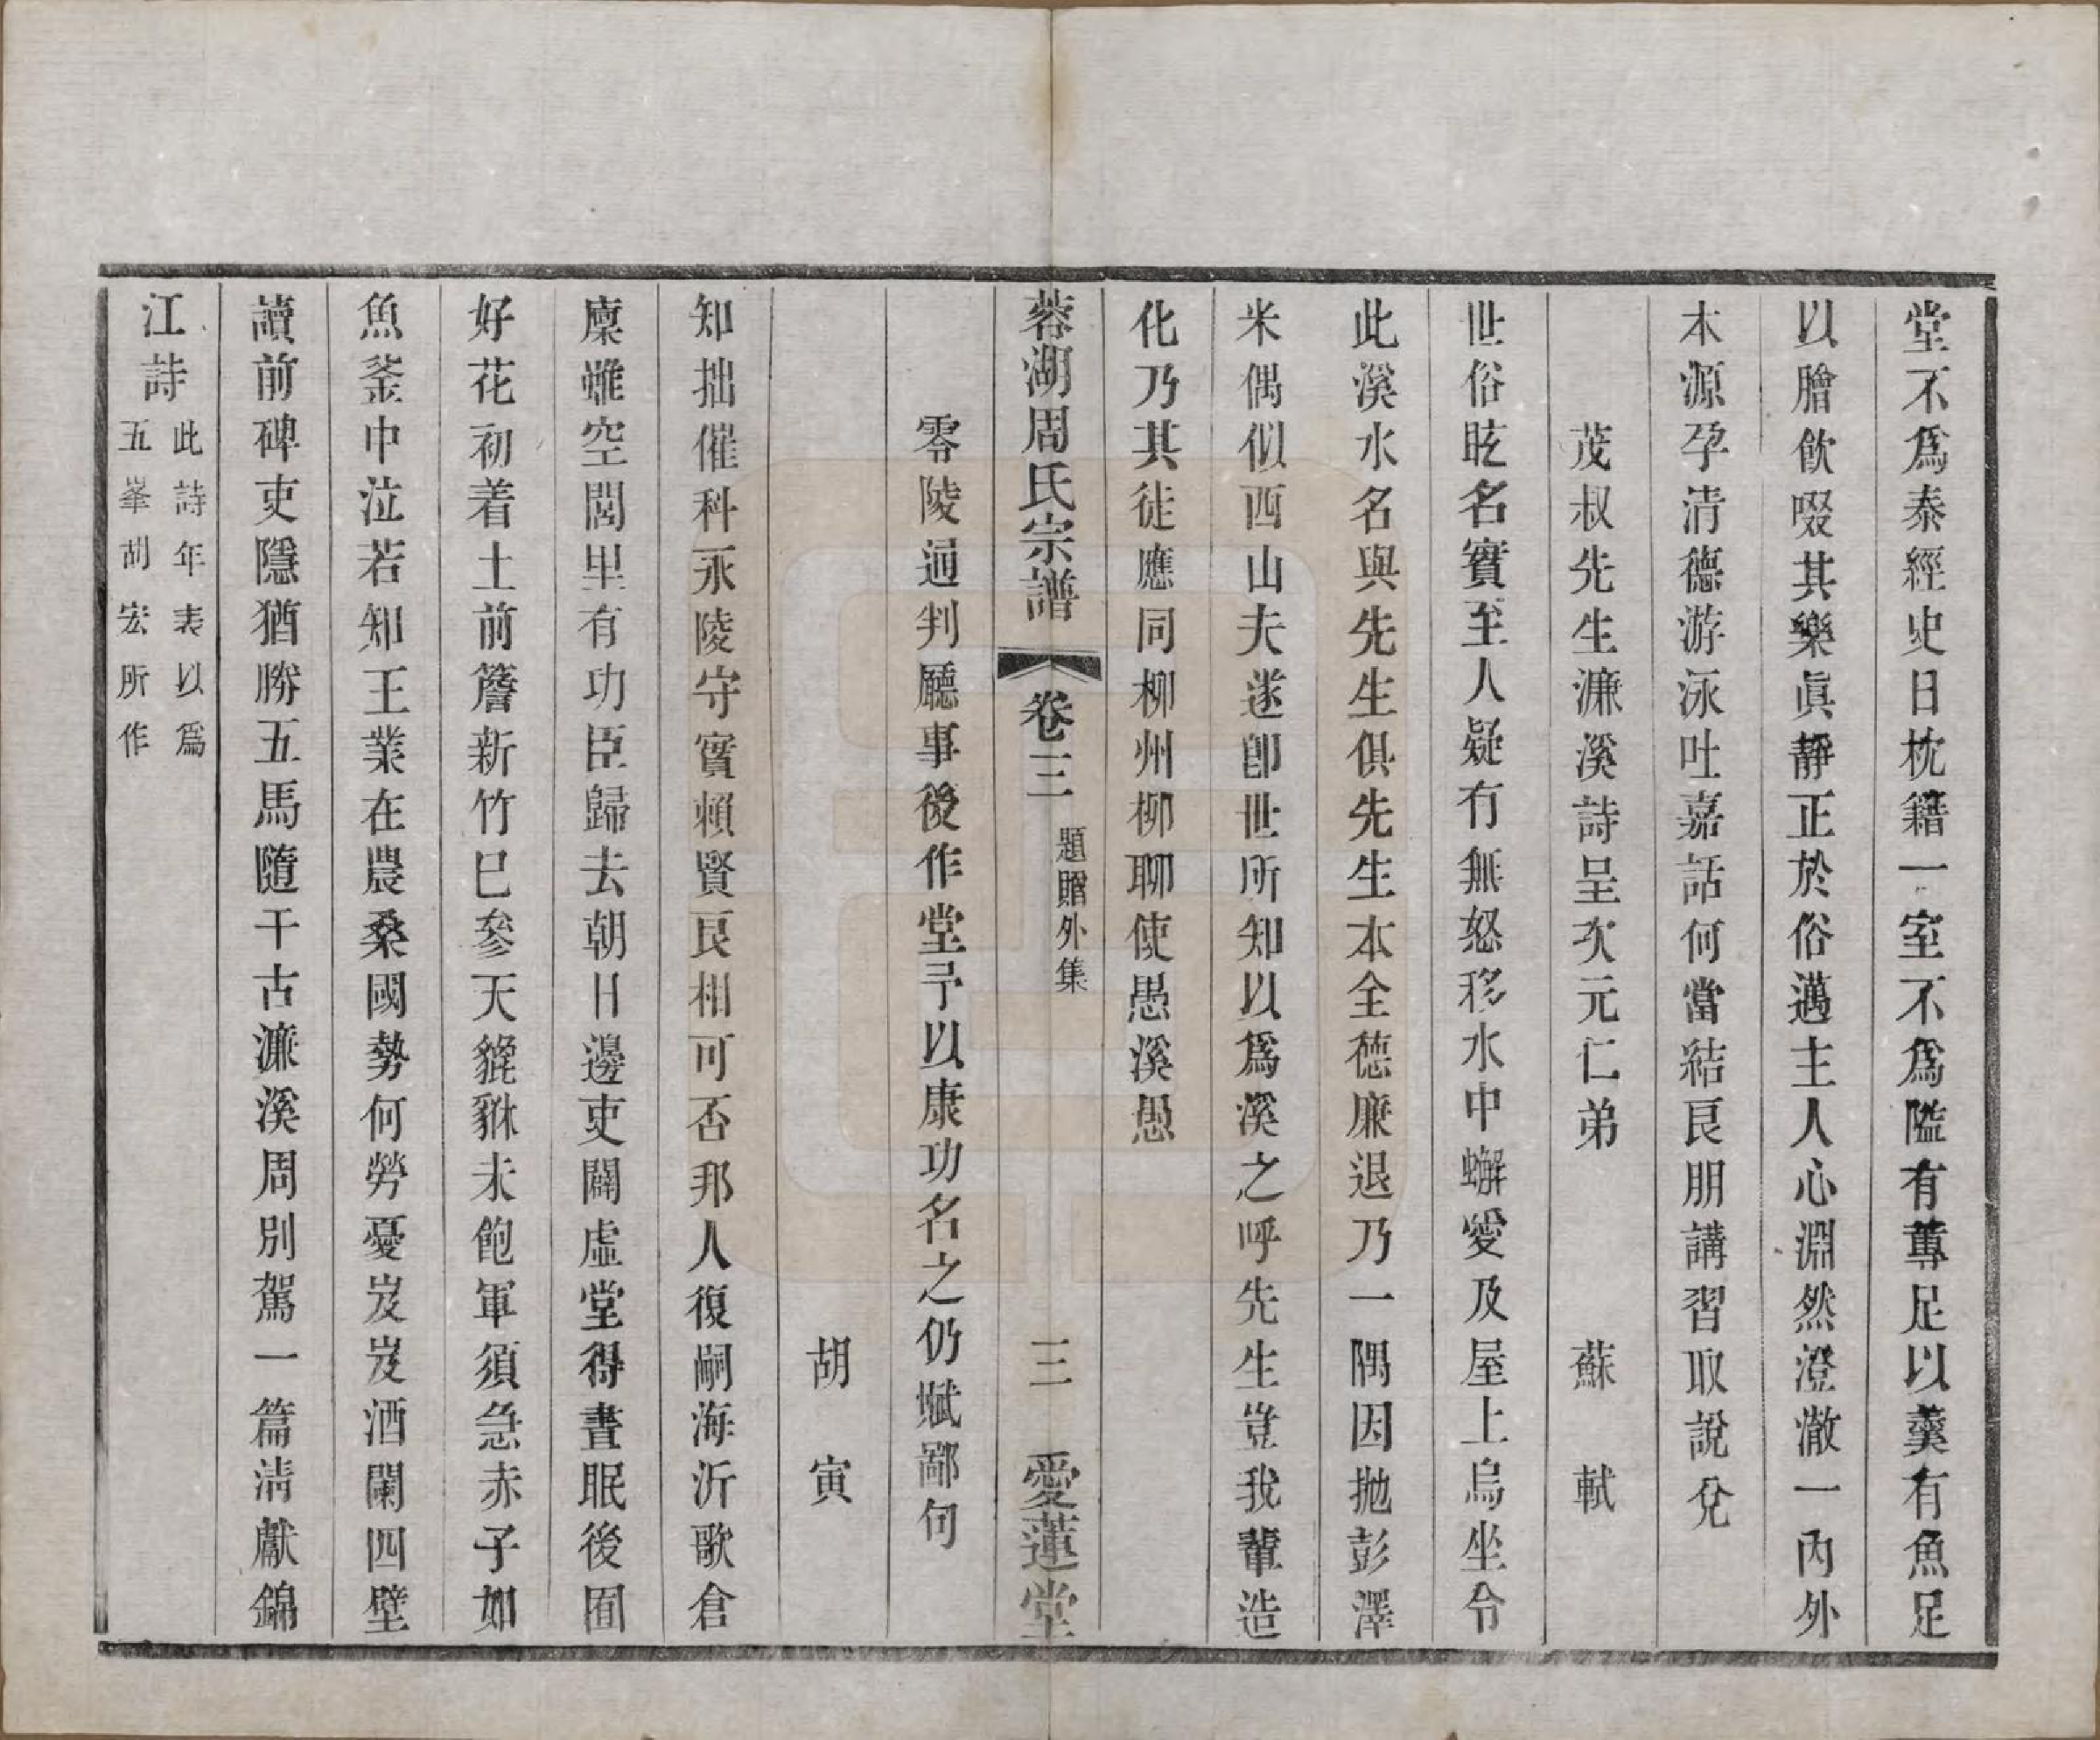 堂不爲泰經史日枕籍一室不爲隘有蓴足以羹有魚足
以膾飲啜其樂眞靜正於俗邁主人心淵然澄澈一內外
木源孕清德游泳吐嘉話何當結良朋講習取說兌
茂叔先生濂溪詩呈次元仁弟　蘇軾
世俗眩名實至人疑有無怒移水中蠏愛及屋上烏坐令
此溪水名與先生俱先生本全德廉退乃一隅因拋彭澤
米偶似西山夫遂卽世所知以爲溪之呼先生豈我輩造
化乃其徒應同柳州柳聊使愚溪愚
蓉湖周氏宗譜　卷三　題贈外集　三　愛蓮堂
零陵通判廳事後作堂予以康功名之仍賦鄙句
胡寅
知拙催科永陵守實賴賢良相可否邦人復嗣海沂歌倉
廩雖空閭里有功臣歸去朝日邊吏闢虛堂得晝眠後囿
好花初着土前簷新竹已參天貔貅未飽軍須急赤子如
魚釜中泣若知王業在農桑國勢何勞憂岌岌酒闌四壁
讀前碑吏隱猶勝五馬隨千古濂溪周別駕一篇清獻錦
江詩　此詩年表以爲
五峯胡宏所作